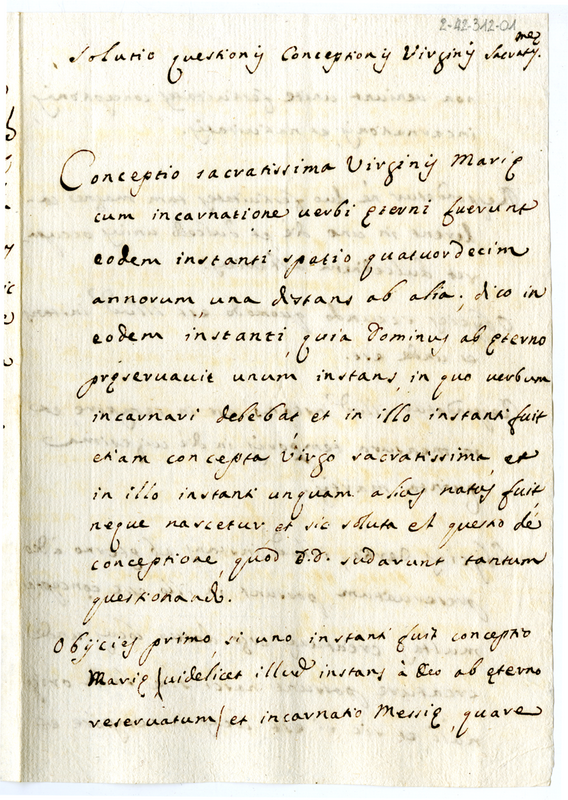 2-42-312-01
Solutio questionis Conceptionis Virginis Sacratis.mę
Conceptio sacratissima Virginis Marię
cum incarnatione verbi ęterni fuerunt
eodem instanti spatio quatuordecim
annorum, una distans ab alia; dico in
eodem instanti, quia Dominus ab ęterno
pręservavit unum instans, in quo verbum
incarnari debebat et in illo instanti fuit
etiam concepta Virgo sacratissima, et
in illo instanti unquam alias natus fuit,
neque nascetur et sic soluta est questio de
conceptione, quod D.D. sudarunt tantum
questionando.
Obijcies primo, si uno instanti fuit conceptio
Marię (videlicet illud instans à Deo ab ęterno
reservatum) et incarnatio Messię, quare